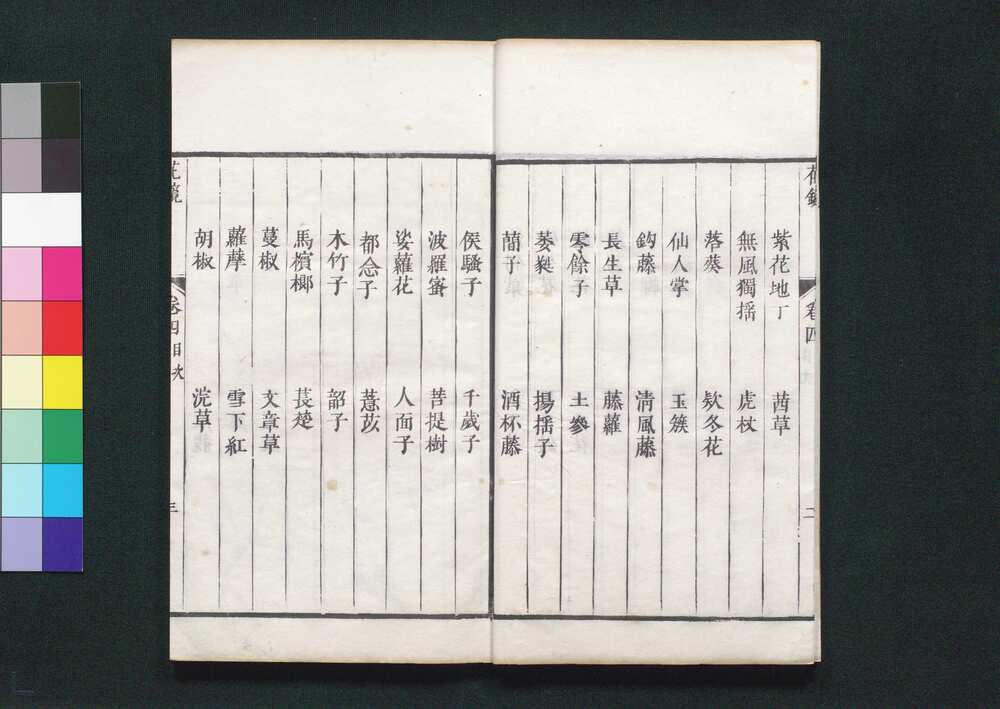 花鏡 卷四 二
紫花地丁 茜草
無風獨揺 虎杖
落葵 欵冬花
仙人掌 玉簇
鈎藤 清風藤
長生草 藤蘿
零餘子 土參
萎蕤 揚揺子
蕳子 酒杯藤
侯騷子 千歲子
波羅蜜 菩提樹
娑蘿花 人面子
都念子 薏苡
木竹子 韶子
馬檳榔 萇楚
蔓椒 文章草
蘿藦 雪下紅
胡椒 浣草
花鏡 卷四目次 三